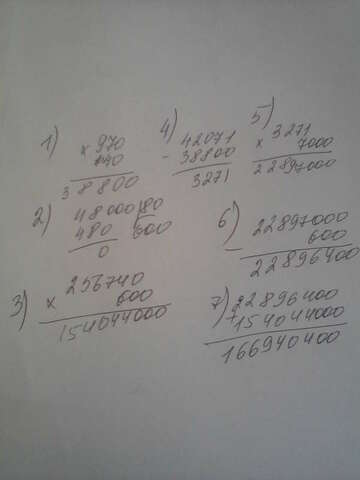 1)
× 970
40
38800
2)
48000|80
480 600
0
3)
256740
× 600
154044000
4)
42071
- 38800
3271
5)
× 3271
7000
22897000
6)
22897000
- 600
22896400
7)
22896400
+ 154044000
166940400